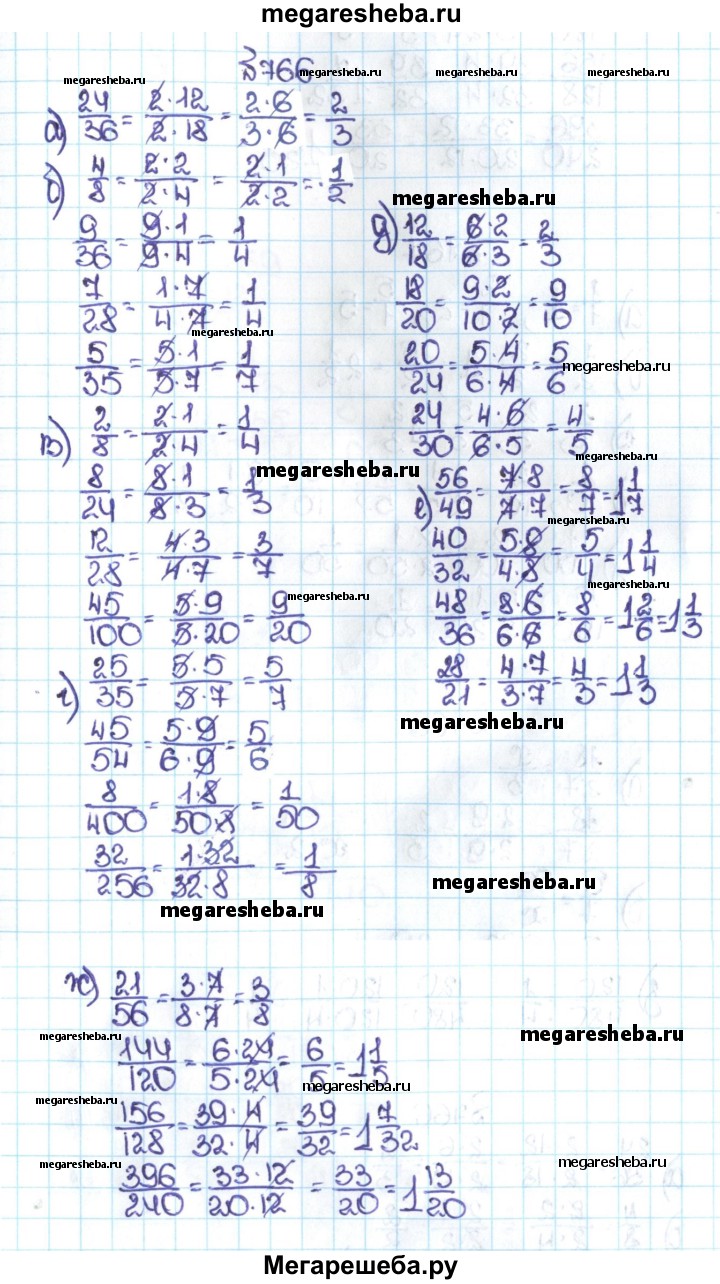 megaresheba.ru
№766
megaresheba.ru megaresheba.ru megaresheba.ru megaresheba.ru
а) 24/36 = 2·12/2·18 = 2·6/3·6 = 2/3
б) 4/8 = 2·2/2·4 = 2·1/2·2 = 1/2
megaresheba.ru
9/36 = 9·1/9·4 = 1/4
7/28 = 1·7/4·7 = 1/4
megaresheba.ru
5/35 = 5·1/5·7 = 1/7
в) 2/8 = 2·1/2·4 = 1/4
8/24 = 8·1/8·3 = 1/3
megaresheba.ru
12/28 = 4·3/4·7 = 3/7
45/100 = 5·9/5·20 = 9/20
megaresheba.ru
г) 25/35 = 5·5/5·7 = 5/7
45/54 = 5·9/6·9 = 5/6
8/400 = 1·8/50·8 = 1/50
32/256 = 1·32/32·8 = 1/8
megaresheba.ru
д) 12/18 = 6·2/6·3 = 2/3
18/20 = 9·2/10·2 = 9/10
20/24 = 5·4/6·4 = 5/6
megaresheba.ru
24/30 = 4·6/6·5 = 4/5
е) 56/49 = 7·8/7·7 = 8/7 = 1 1/7
megaresheba.ru
40/32 = 5·8/4·8 = 5/4 = 1 1/4
megaresheba.ru
48/36 = 8·6/6·6 = 8/6 = 1 2/6 = 1 1/3
28/21 = 4·7/3·7 = 4/3 = 1 1/3
megaresheba.ru
megaresheba.ru
ж) 21/56 = 3·7/8·7 = 3/8
megaresheba.ru megaresheba.ru
144/120 = 6·24/5·24 = 6/5 = 1 1/5
megaresheba.ru
megaresheba.ru
156/128 = 39·4/32·4 = 39/32 = 1 7/32
megaresheba.ru megaresheba.ru
396/240 = 33·12/20·12 = 33/20 = 1 13/20
Мегарешеба.ру